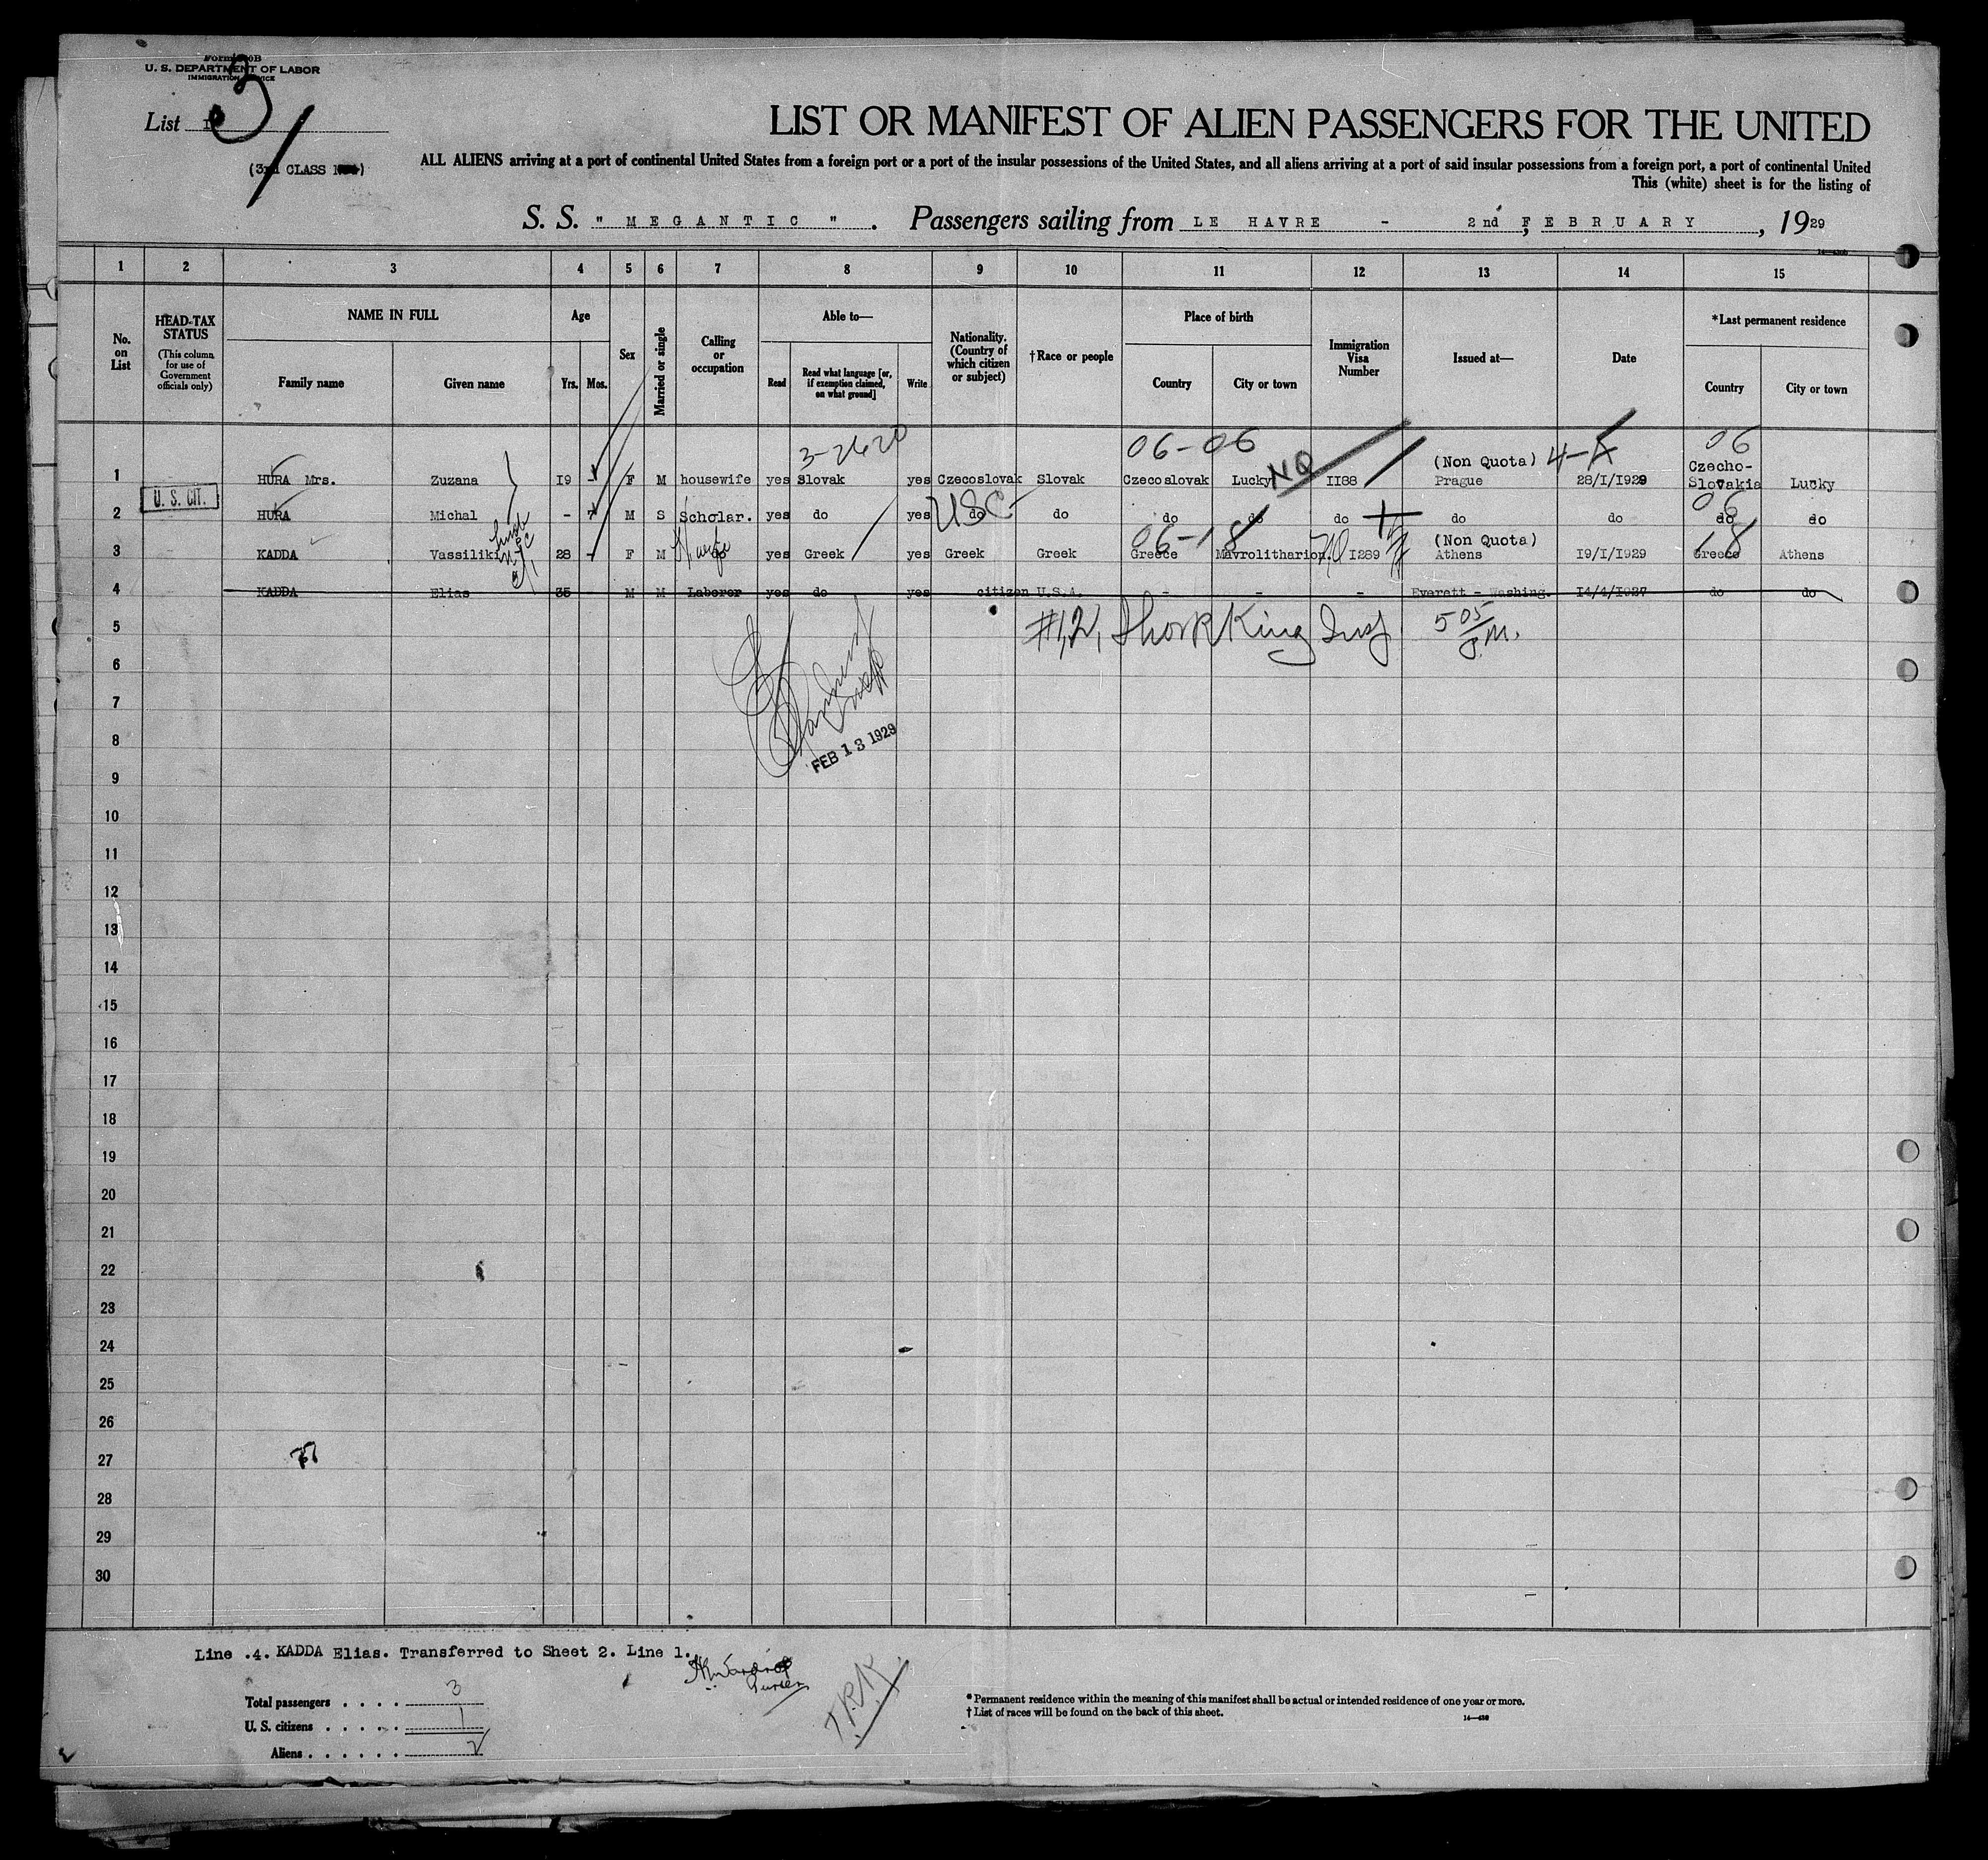 Form 500B
U. S. DEPARTMENT OF LABOR
IMMIGRATION SERVICE
List 3
(3rd CLASS)
LIST OR MANIFEST OF ALIEN PASSENGERS FOR THE UNITED
ALL ALIENS arriving at a port of continental United States from a foreign port or a port of the insular possessions of the United States, and all aliens arriving at a port of said insular possessions from a foreign port, a port of continental United
This (white) sheet is for the listing of
S. S. " MEGANTIC " . Passengers sailing from LE HAVRE - 2nd, FEBRUARY, 1929
1 2 3 4 5 6 7 8 9 10 11 12 13 14 15
No. on List
HEAD-TAX STATUS
(This column for use of Government officials only)
NAME IN FULL
Family name Given name
Age
Yrs. Mos.
Sex
Married or single
Calling or occupation
Able to—
Read Read what language [or, if exemption claimed, on what ground] Write
Nationality. (Country of which citizen or subject)
†Race or people
Place of birth
Country City or town
Immigration Visa Number
Issued at—
Date
*Last permanent residence
Country City or town
3-2620 06-06 NQ 4-A 06
1 HURA Mrs. Zuzana I9 - F M housewife yes Slovak yes Czecoslovak Slovak Czecoslovak Lucky II88 (Non Quota) Prague 28/I/1929 Czecho-Slovakia Lucky
U. S. CIT.
2 HURA Michal - 7 M S Scholar. yes do yes do USC do do do do do do do do
06-18 06
3 KADDA Vassiliki 28 - F M do H wife yes Greek yes Greek Greek Greece Mavrolitharion. I289 (Non Quota) Athens I9/I/1929 Greece 18 Athens
4 KADDA Elias 35 - M M Laborer yes do yes citizen U.S.A. - - - Everett - Washing. I4/4/1927 do do
5 #1,2, King Insp 5 05 P.M.
6
7
FEB 13 1929
8
9
10
11
12
13
14
15
16
17
18
19
20
21
22
23
24
25
26
27
28
29
30
Line .4. KADDA Elias. Transferred to Sheet 2. Line 1.
Purser
Total passengers . . . . 3
U. S. citizens . . . . . 1
Aliens . . . . . . 2
*Permanent residence within the meaning of this manifest shall be actual or intended residence of one year or more.
†List of races will be found on the back of this sheet.